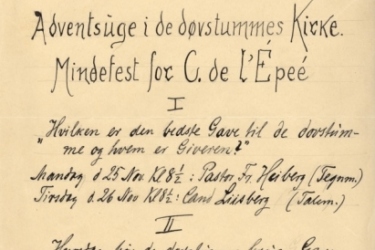 Adventsuge i de døvstummes Kirke.
Mindefest for C. de l'Épeé
I
„Hvilken er den bedste Gave til de døvstum-
me og hvem er Giveren?"
Mandag d 25 Nov Kl 8½ : Pastor Fr. Heiberg (Tegnm.)
Tirsdag d. 26 Nov Kl 8½ : Cand Lissberg (Talem.)
II